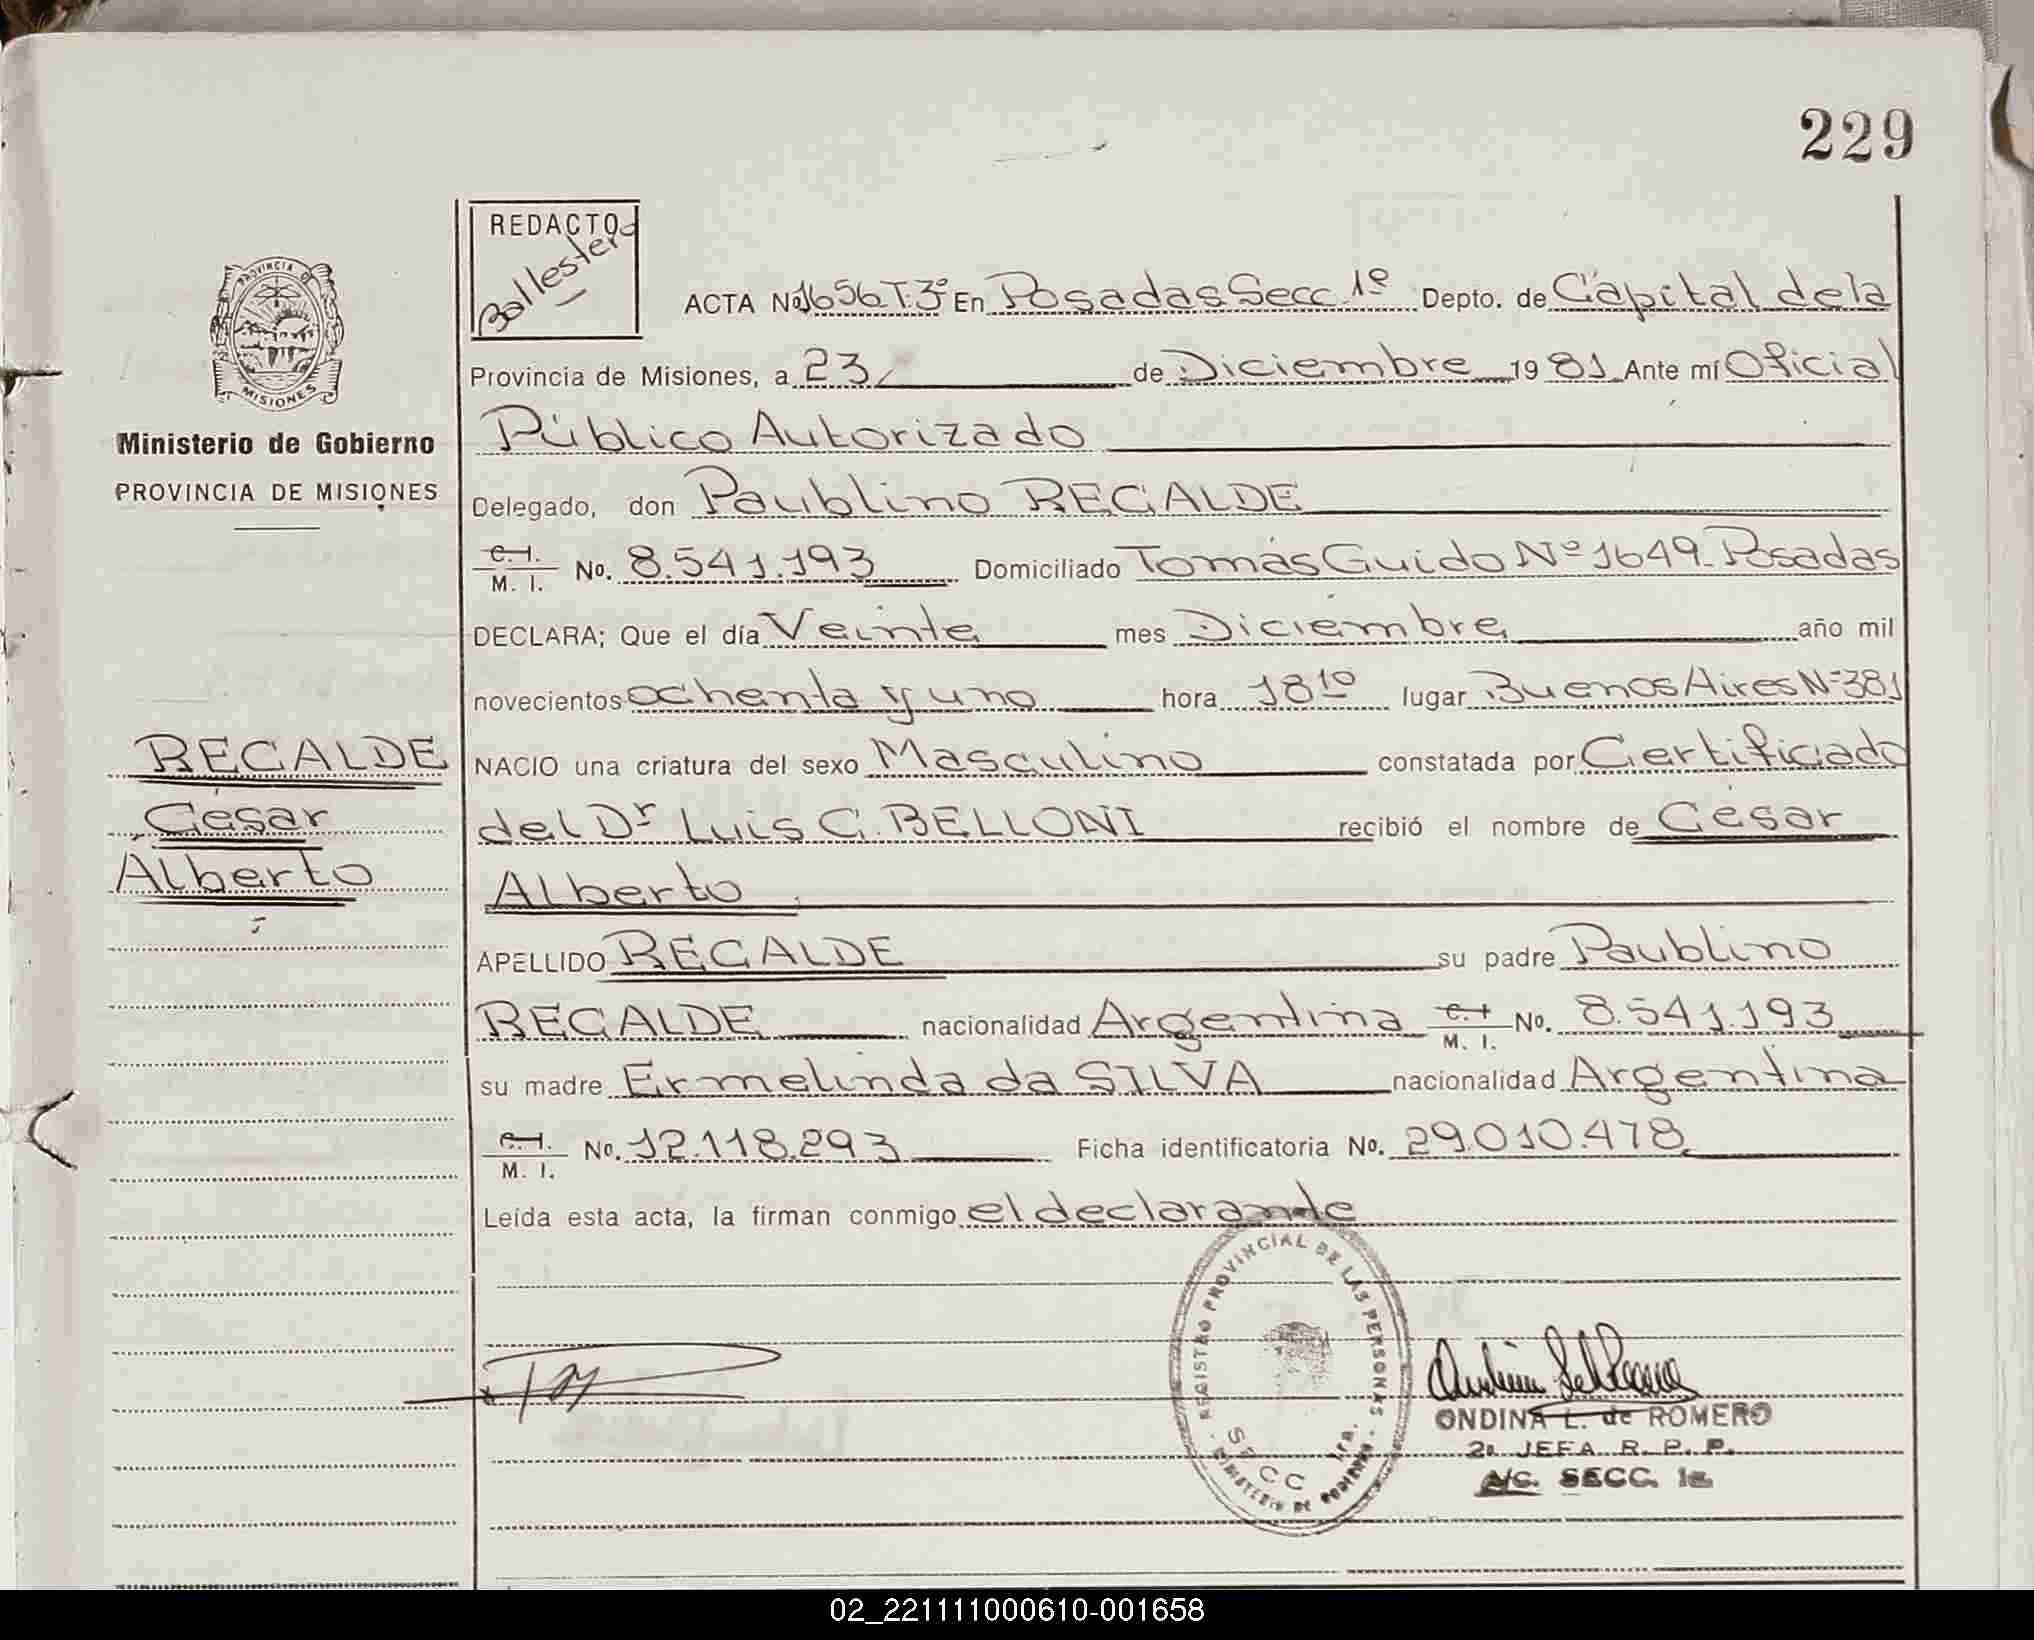 229
REDACTO
Ballestero
ACTA No 1656 T.3º En Posadas Secc. 1º Depto. de Capital de la
Provincia de Misiones, a 23 de Diciembre 1981 Ante mí Oficial
Público Autorizado
Delegado, don Paublino REGALDE
C. I.
M. I. No. 8.541.193 Domiciliado Tomás Guido Nº 1649 - Posadas
DECLARA; Que el día Veinte mes Diciembre año mil
novecientos ochenta y uno hora 18 10 lugar Buenos Aires Nº 381
NACIO una criatura del sexo Masculino constatada por Certificado
del Dr Luis C. BELLONI recibió el nombre de César
Alberto
APELLIDO REGALDE su padre Paublino
REGALDE nacionalidad Argentina C. I.
M. I. No. 8.541.193
su madre Ermelinda da SILVA nacionalidad Argentina
C. I.
M. I. No. 12.118.293 Ficha identificatoria No. 29.010.478
Leída esta acta, la firman conmigo el declarante
PROVINCIA DE
MISIONES
Ministerio de Gobierno
PROVINCIA DE MISIONES
REGALDE
César
Alberto
REGISTRO PROVINCIAL DE LAS PERSONAS
SECC 1ra.
MINISTERIO DE GOBIERNO
ONDINA L. de ROMERO
2a JEFA R. P. P.
A/C. SECC. 1a
02_221111000610-001658